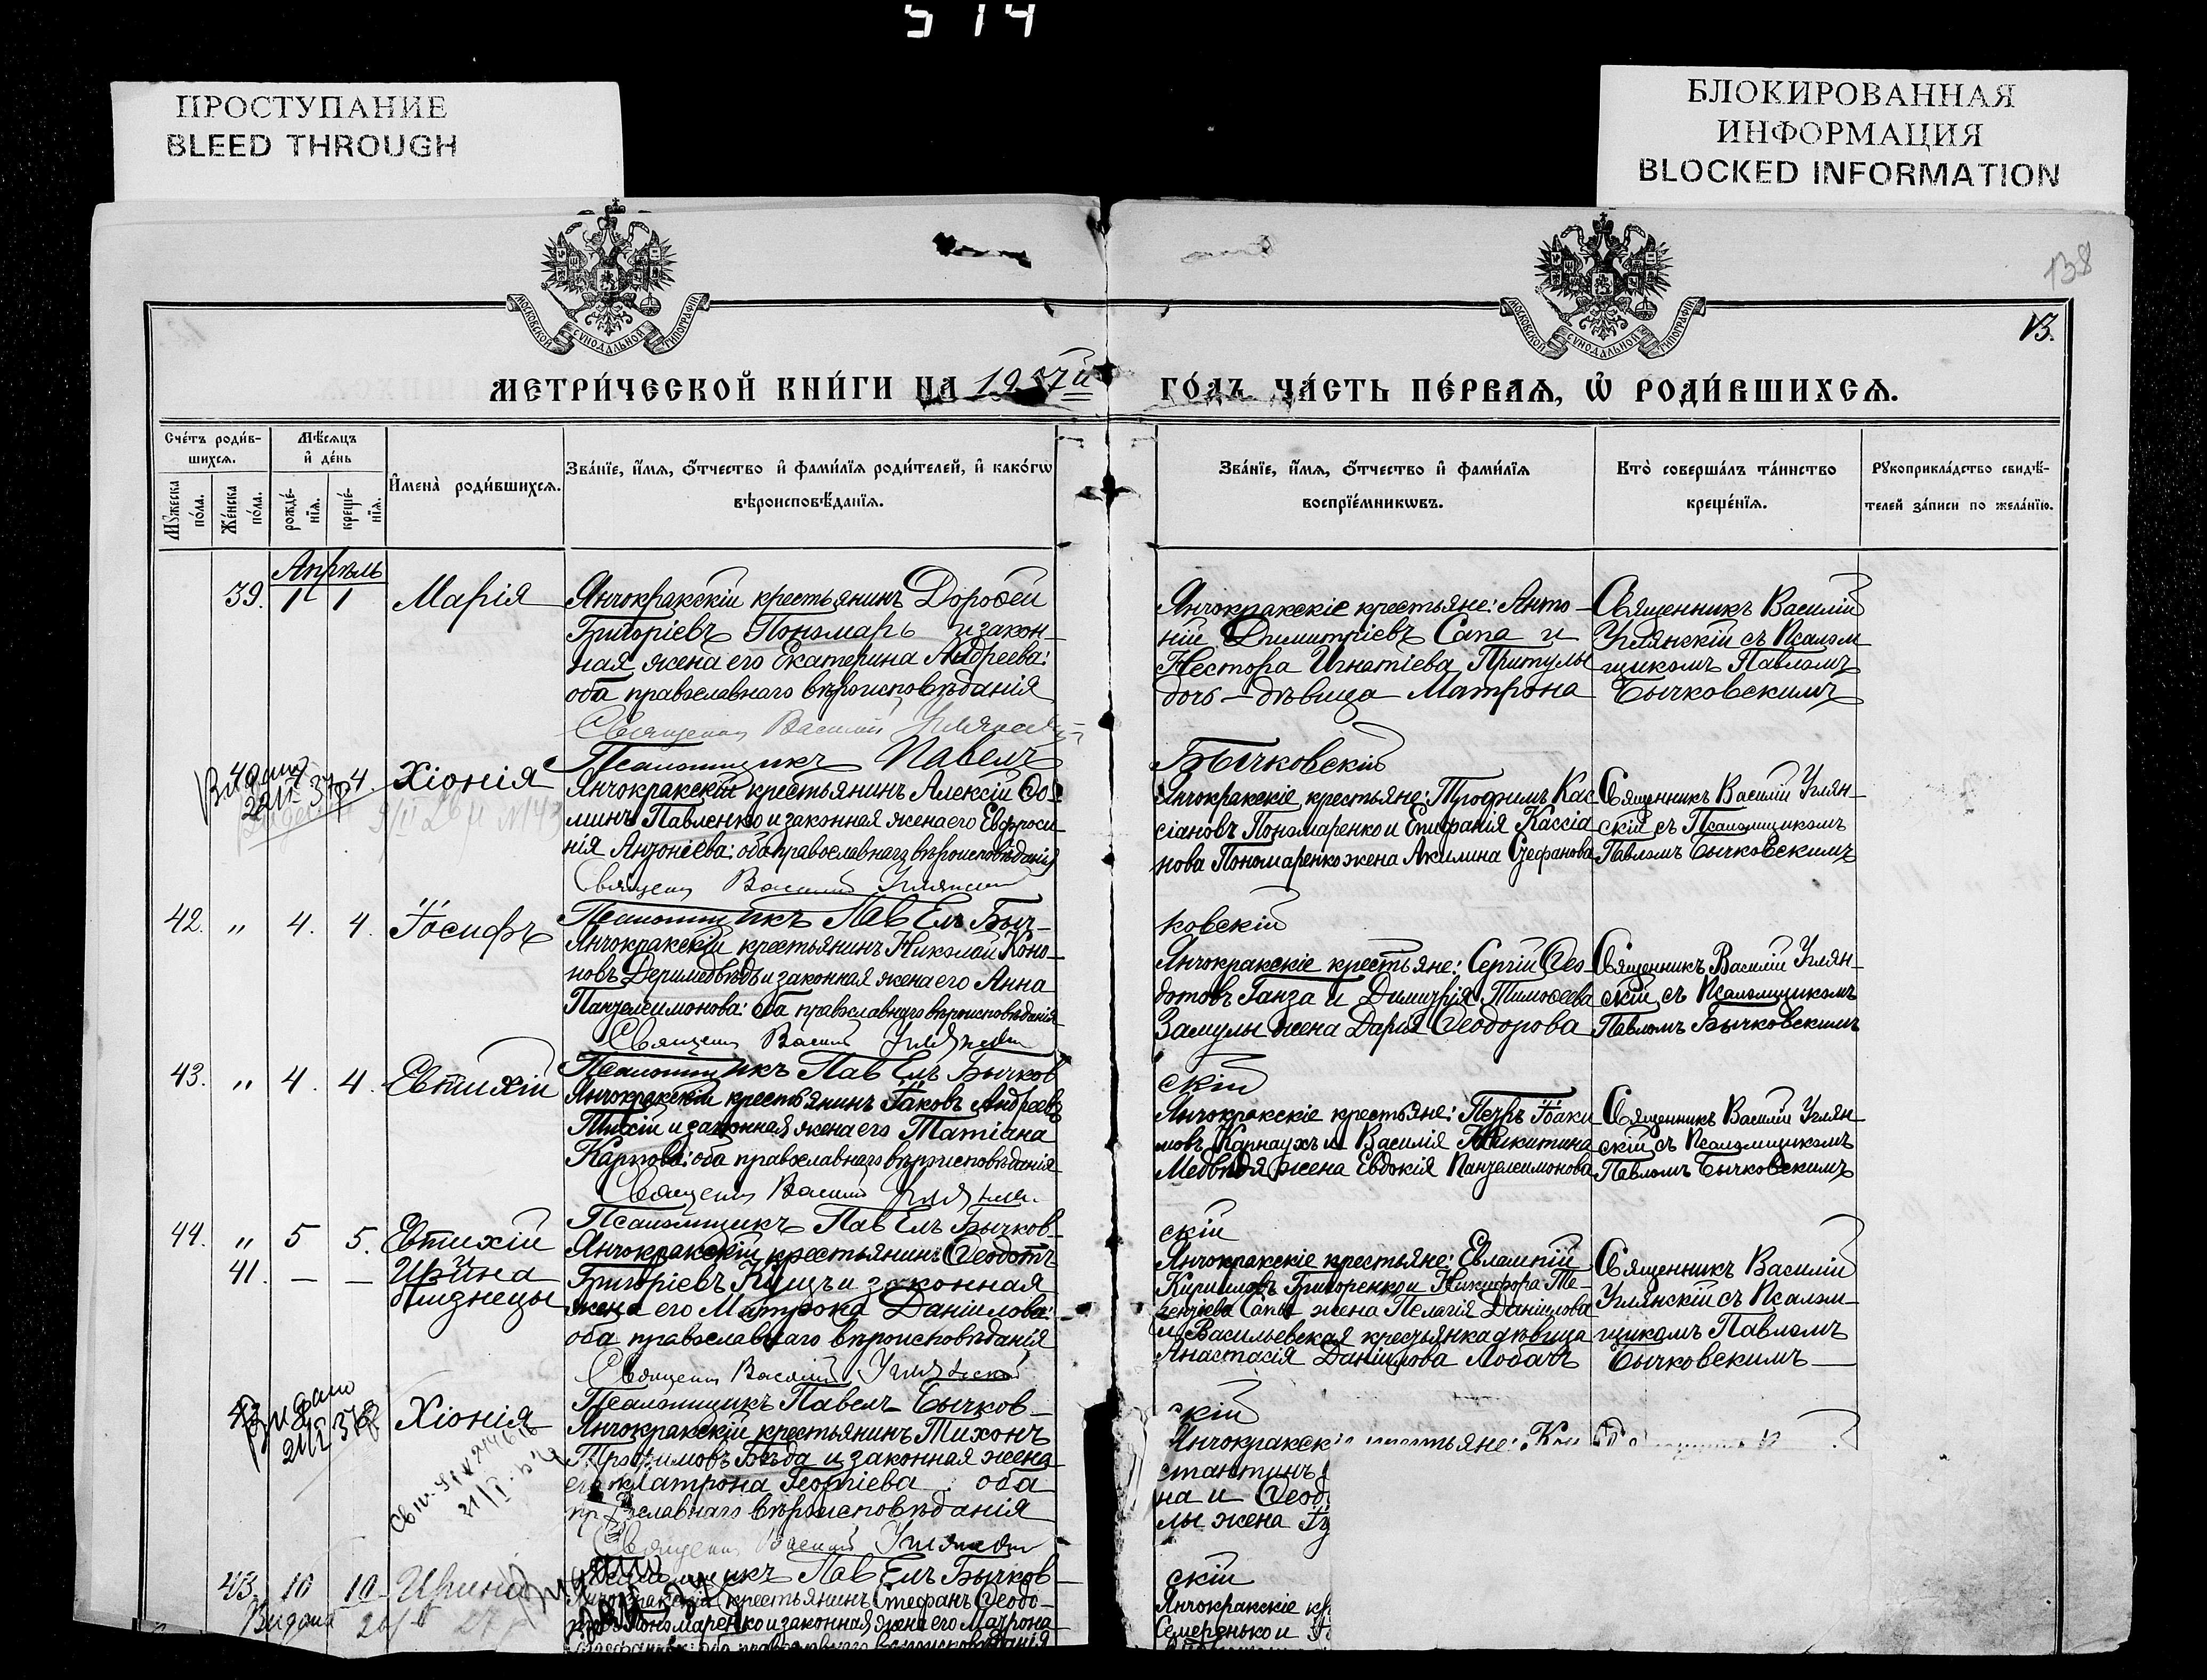 514
ПРОСТУПАНИЕ
BLEED THROUGH
БЛОКИРОВАННАЯ
ИНФОРМАЦИЯ
BLOCKED INFORMATION
138
МОСКОВСКОЙ СѴНОДАЛЬНОЙ ТИПОГРАФІИ
МОСКОВСКОЙ СѴНОДАЛЬНОЙ ТИПОГРАФІИ
13.
МЕТРИ́ЧЕСКОЙ КНИ́ГИ НА
ГО́ДЪ ЧА́СТЬ ПЕ́РВАЯ, Ѡ РОДИ́ВШИХСЯ.
Сче́тъ роди́в-
шихся.
Мѣ́сяцъ
и де́нь
Мꙋ́жеска по́ла.
Же́нска по́ла.
рожде́-
нїя.
креще́-
нїя.
И҆мена̀ роди́вшихся.
Зва́нїе, и҆́мя, ѻ҆́тчество и҆ фами́лїя роди́телей, и҆ како́гѡ
вѣроисповѣ́данїя.
Зва́нїе, и҆́мя, ѻ҆́тчество и҆ фами́лїя
воспрїе́мникѡвъ.
Кто̀ соверша́лъ та́инство
креще́нїя.
Рꙋкоприкла́дство свидѣ́-
телей за́писи по жела́нїю.
Апрѣль
39. 1 1 Марія
Янчокракскій крестьянинъ Дороѳей
Григоріевъ Пономарь и закон-
ная жена его Екатерина Андреева:
оба православнаго вѣроисповѣданія
Священникъ Василій Углянскій
Псаломщикъ Павелъ
Янчокракскіе крестьяне: Анто-
ній Димитріевъ Сапа и
Нестора Игнатіева Притулы
дочь – дѣвица Матрона
Бычковскій
Священникъ Василій
Углянскій съ Псалом
щикомъ Павломъ
Бычковскимъ
40 4. Хіонія
Видано
Янчокракскій крестьянинъ Алексій Ѳо-
минъ Павленко и законная жена его Евфроси-
нія Антоніева: оба православнаго вѣроисповѣданія
Священ Василій Углянскій
Псаломщикъ Павелъ Быч-
Янчокракскіе крестьяне: Трофимъ Кас
сіановъ Пономаренко и Епифанія Кассіа
нова Пономаренко жена Акилина Стефанова
ковскій
Священникъ Василій Углян-
скій съ Псаломщикомъ
Павломъ Бычковскимъ
42. " 4. 4. Іосифъ
Янчокракскій крестьянинъ Николай Коно-
новъ Деримедвѣдь и законная жена его Анна
Пантелеимонова: оба православнаго вѣроисповѣданія
Священ Василій Углянскій
Псаломщикъ Павелъ Бычков
Янчокракскіе крестьяне: Сергій Ѳео-
дотовъ Ганза и Димитрія Тимоѳеева
Замулы жена Дарія Ѳеодорова
скій
Священникъ Василій Углян-
скій съ Псаломщикомъ
Павломъ Бычковскимъ
43. " 4. 4. Евтихій
Янчокракскій крестьянинъ Іаковъ Андреевъ
Тихій и законная жена его Татіана
Карпова: оба православнаго вѣроисповѣданія
Священ Василій Углянскій
Псаломщикъ Павелъ Бычков-
Янчокракскіе крестьяне: Петръ Іоаки
мовъ Карнаухъ и Василія Никитина
Медвѣдя жена Евдокія Пантелеимонова
скій
Священникъ Василій Углян
скій съ Псаломщикомъ
Павломъ Бычковскимъ
44. " 5 5. Евтихій
41. – – Ирина
близнецы
Янчокракскій крестьянинъ Ѳеодотъ
Григоріевъ Куцъ и законная
жена его Матрона Даніилова:
оба православнаго вѣроисповѣданія
Священ Василій Углянскій
Псаломщикъ Павелъ Бычков-
Янчокракскіе крестьяне: Евлампій
Кирилловъ Григоренко и Никифора Те-
рентіева Сапы жена Пелагія Даніилова
и Васильевская крестьянка дѣвица
Анастасія Даніилова Лобачъ
скій
Священникъ Василій
Углянскій съ Псалом-
щикомъ Павломъ
Бычковскимъ
Видано
Хіонія
Янчокракскій крестьянинъ Тихонъ
Трофимовъ Бѣда и законная жена
его Матрона Георгіева: оба
православнаго вѣроисповѣданія
Священ Василій Углянскій
Псаломщикъ Павелъ Бычков-
Янчокракскіе крестьяне: Кон
стантинъ
на и Ѳеод
лы жена
скій
43. 10 10 Ирина
Видана
Янчокракскій крестьянинъ Стефанъ Ѳеодо-
ровъ Пономаренко и законная жена его Матрона
оба православнаго вѣроисповѣданія
Янчокракскіе кр
Семеренько и